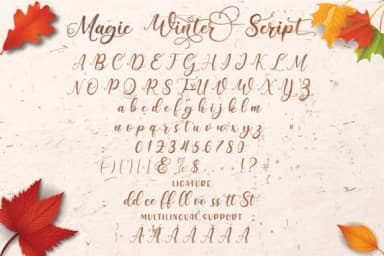 Magic Winter Script
A B C D E F G H I J K L M
N O P Q R S T U V W X Y Z
a b c d e f g h i j k l m
n o p q r s t u v w x y z
0 1 2 3 4 5 6 7 8 9
! ?
LIGATURE
dd ee ff ll oo ss tt St
MULTILINGUAL SUPPORT